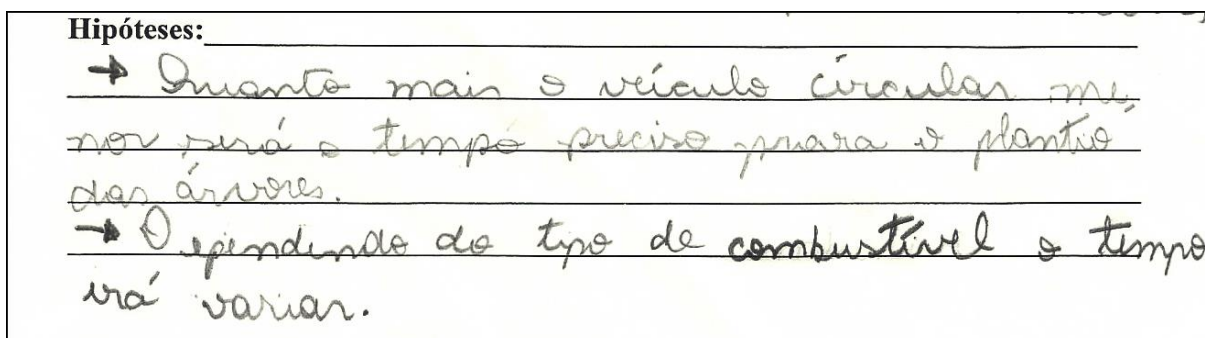 Hipóteses:
→ Quanto mais o veículo circular me-
nor será o tempo preciso para o plantio
das árvores.
→ Dependendo do tipo de combustível o tempo
irá variar.